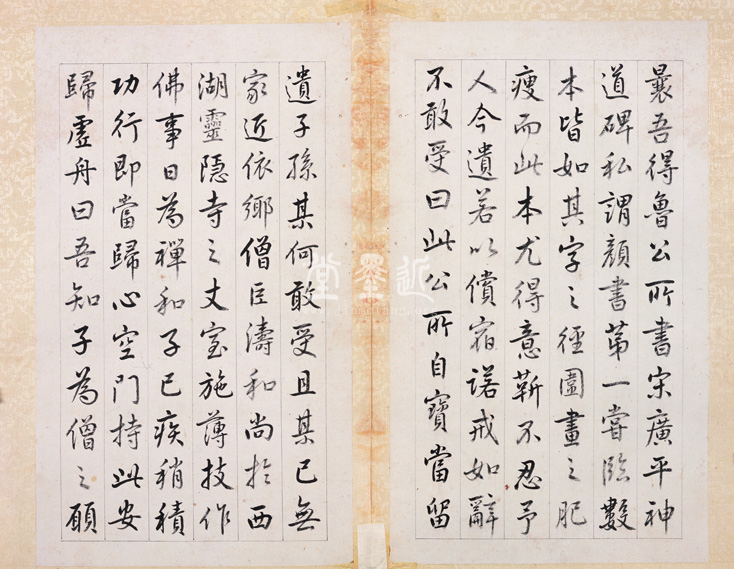 曩吾得魯公所書宋廣平神
道碑私謂顏書第一嘗臨數
本皆如其字之徑圍畫之肥
瘦而此本尤得意靳不忍予
人今遺若以償宿諾戒如辭
不敢受曰此公所自寶當留
遺子孫某何敢受且某已無
家近依鄉僧巨濤和尚於西
湖靈隱寺之丈室施薄技作
佛事日為禪和子已疾稍積
功行即當歸心空門持此安
歸虛舟曰吾知子為僧之願
近墨堂